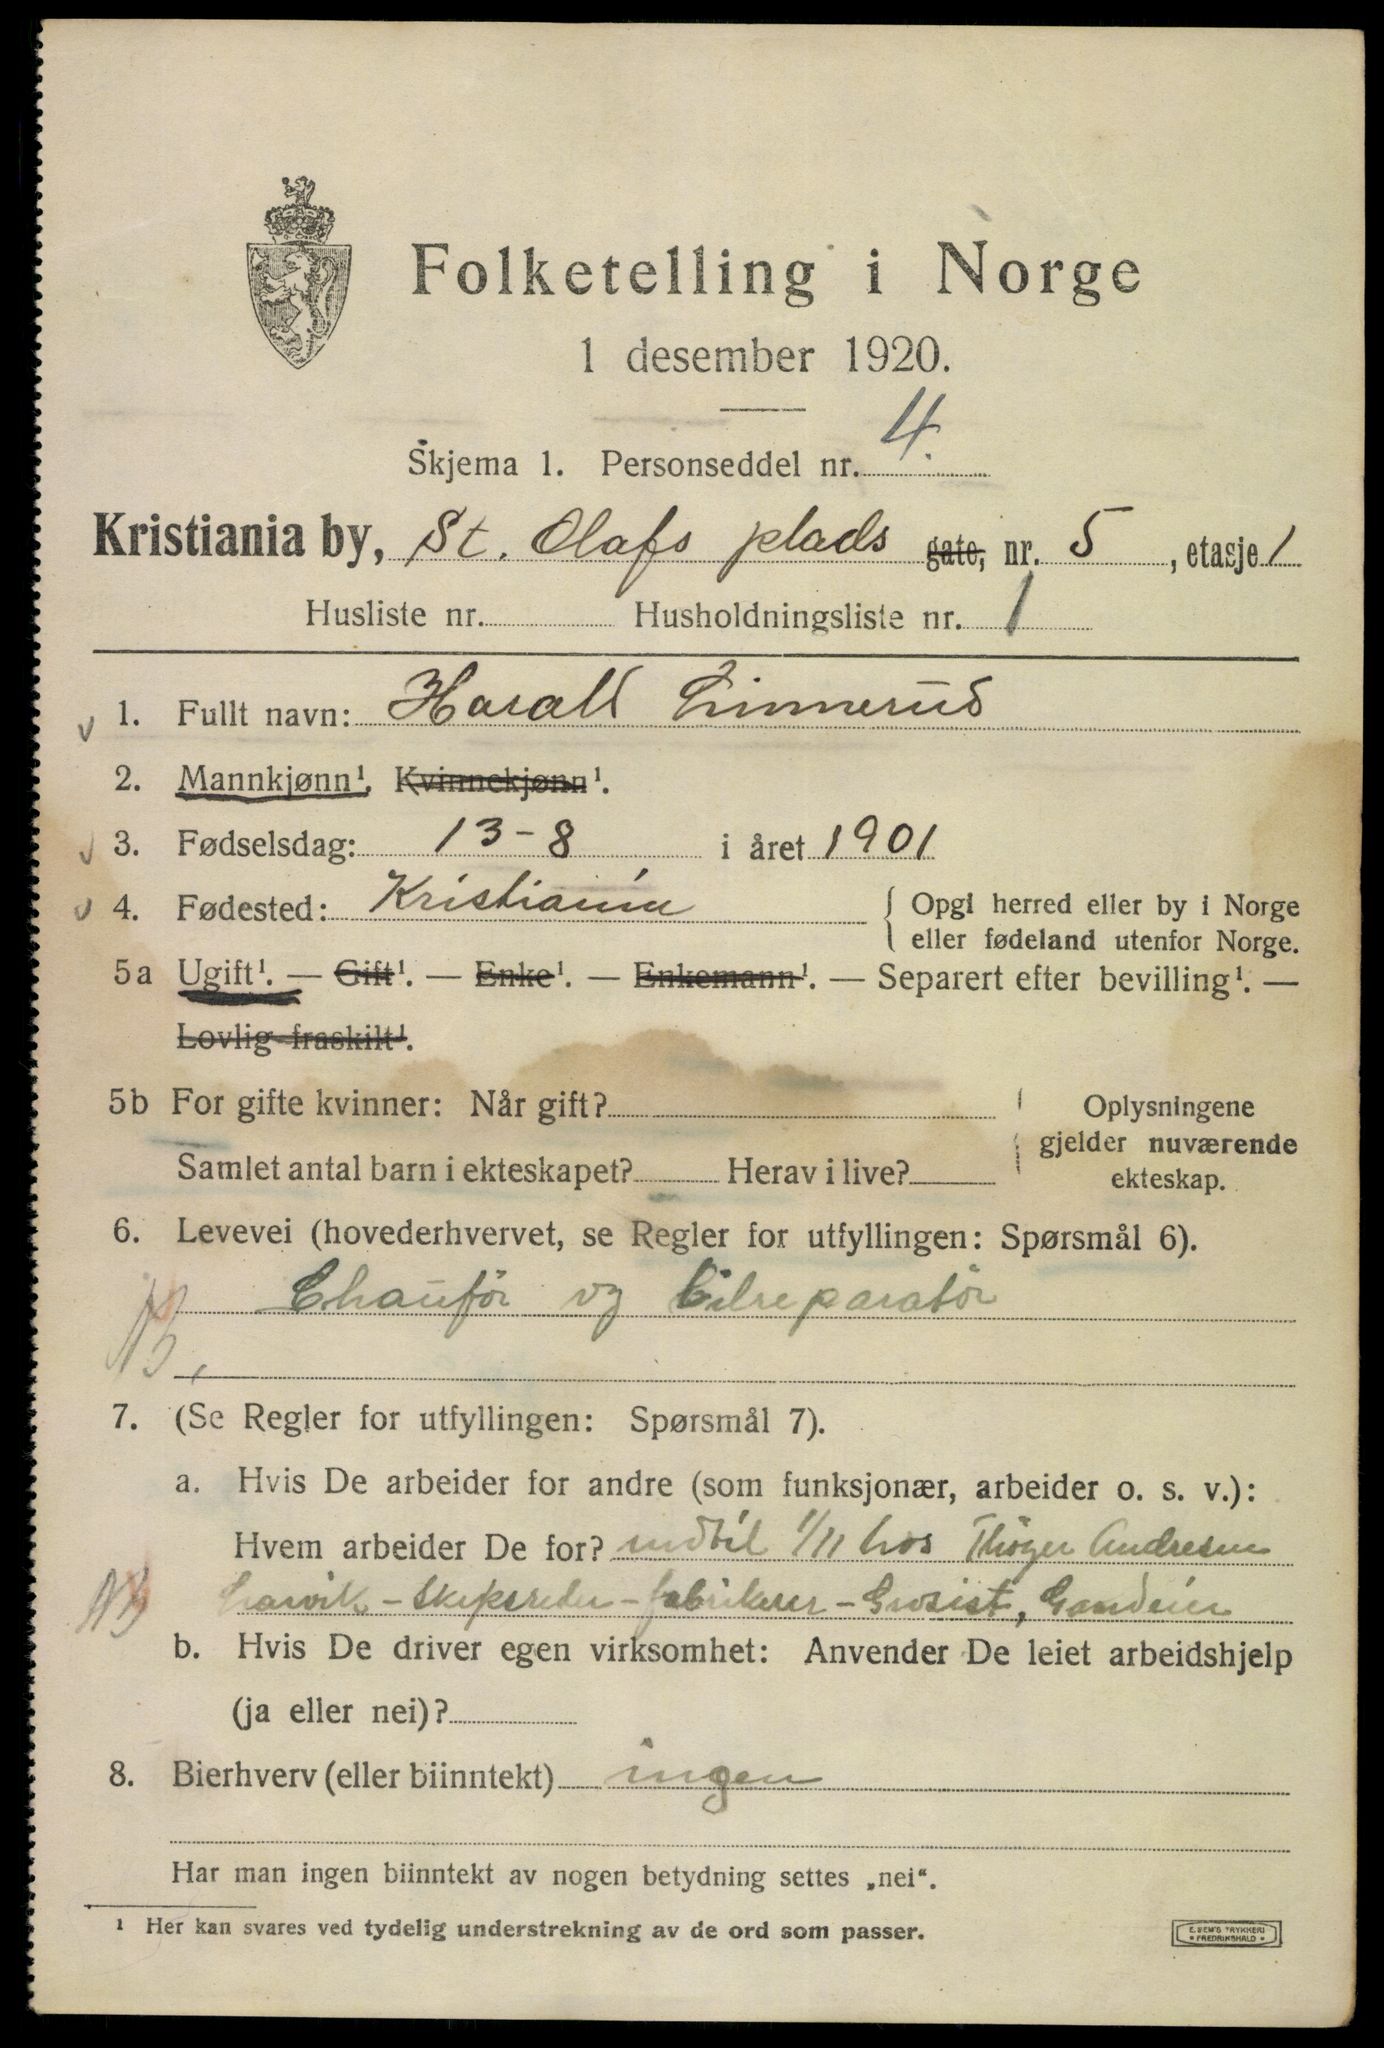 Folketelling i Norge
1 desember 1920.
Skjema 1. Personseddel nr. 4.
Kristiania by, St. Olafs plads gate, nr. 5, etasje 1
Husliste nr. Husholdningsliste nr. 1
1. Fullt navn: Harald Linnerud
2. Mannkjønn¹. Kvinnekjønn¹.
3. Fødselsdag: 13-8 i året 1901
4. Fødested: Kristiania { Opgi herred eller by i Norge
eller fødeland utenfor Norge.
5a Ugift¹. — Gift¹. — Enke¹. — Enkemann¹. — Separert efter bevilling¹. —
Lovlig fraskilt¹.
5b For gifte kvinner: Når gift? Oplysningene
gjelder nuværende
Samlet antal barn i ekteskapet? Herav i live? ekteskap.
6. Levevei (hovederhvervet, se Regler for utfyllingen: Spørsmål 6).
Chauför og Bilreparatör
7. (Se Regler for utfyllingen: Spørsmål 7).
a. Hvis De arbeider for andre (som funksjonær, arbeider o. s. v.):
Hvem arbeider De for? indtil 1/11 hos Thöger Andresen
Larvik - Skipsreder - fabrikeier - Grosist,
b. Hvis De driver egen virksomhet: Anvender De leiet arbeidshjelp
(ja eller nei)?
8. Bierhverv (eller biinntekt) ingen
Har man ingen biinntekt av nogen betydning settes „nei“.
¹ Her kan svares ved tydelig understrekning av de ord som passer.
E. SEM'S TRYKKERI
• FREDRIKSHALD •